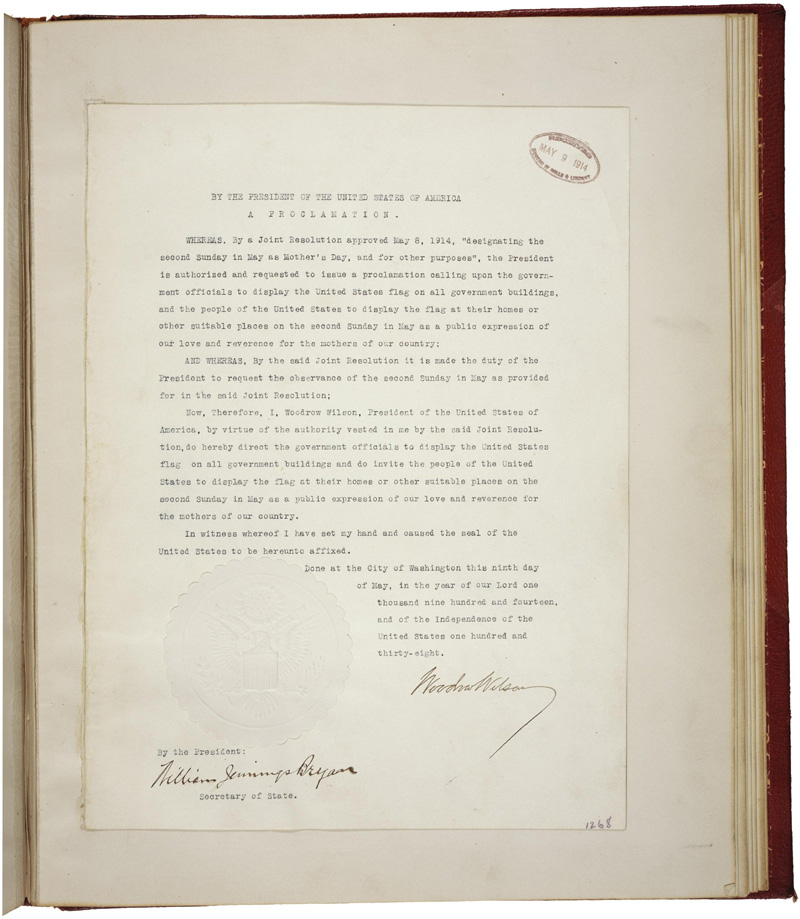 RECEIVED
MAY 9 1914
BUREAU OF ROLLS & LIBRARY
BY THE PRESIDENT OF THE UNITED STATES OF AMERICA
A PROCLAMATION.
WHEREAS, By a Joint Resolution approved May 8, 1914, "designating the
second Sunday in May as Mother's Day, and for other purposes", the President
is authorized and requested to issue a proclamation calling upon the govern-
ment officials to display the United States flag on all government buildings,
and the people of the United States to display the flag at their homes or
other suitable places on the second Sunday in May as a public expression of
our love and reverence for the mothers of our country;
AND WHEREAS, By the said Joint Resolution it is made the duty of the
President to request the observance of the second Sunday in May as provided
for in the said Joint Resolution;
Now, Therefore, I, Woodrow Wilson, President of the United States of
America, by virtue of the authority vested in me by the said Joint Resolu-
tion, do hereby direct the government officials to display the United States
flag on all government buildings and do invite the people of the United
States to display the flag at their homes or other suitable places on the
second Sunday in May as a public expression of our love and reverence for
the mothers of our country.
In witness whereof I have set my hand and caused the seal of the
United States to be hereunto affixed.
Done at the City of Washington this ninth day
of May, in the year of our Lord one
thousand nine hundred and fourteen,
and of the Independence of the
United States one hundred and
thirty-eight.
Woodrow Wilson
By the President:
William Jennings Bryan
Secretary of State.
1268